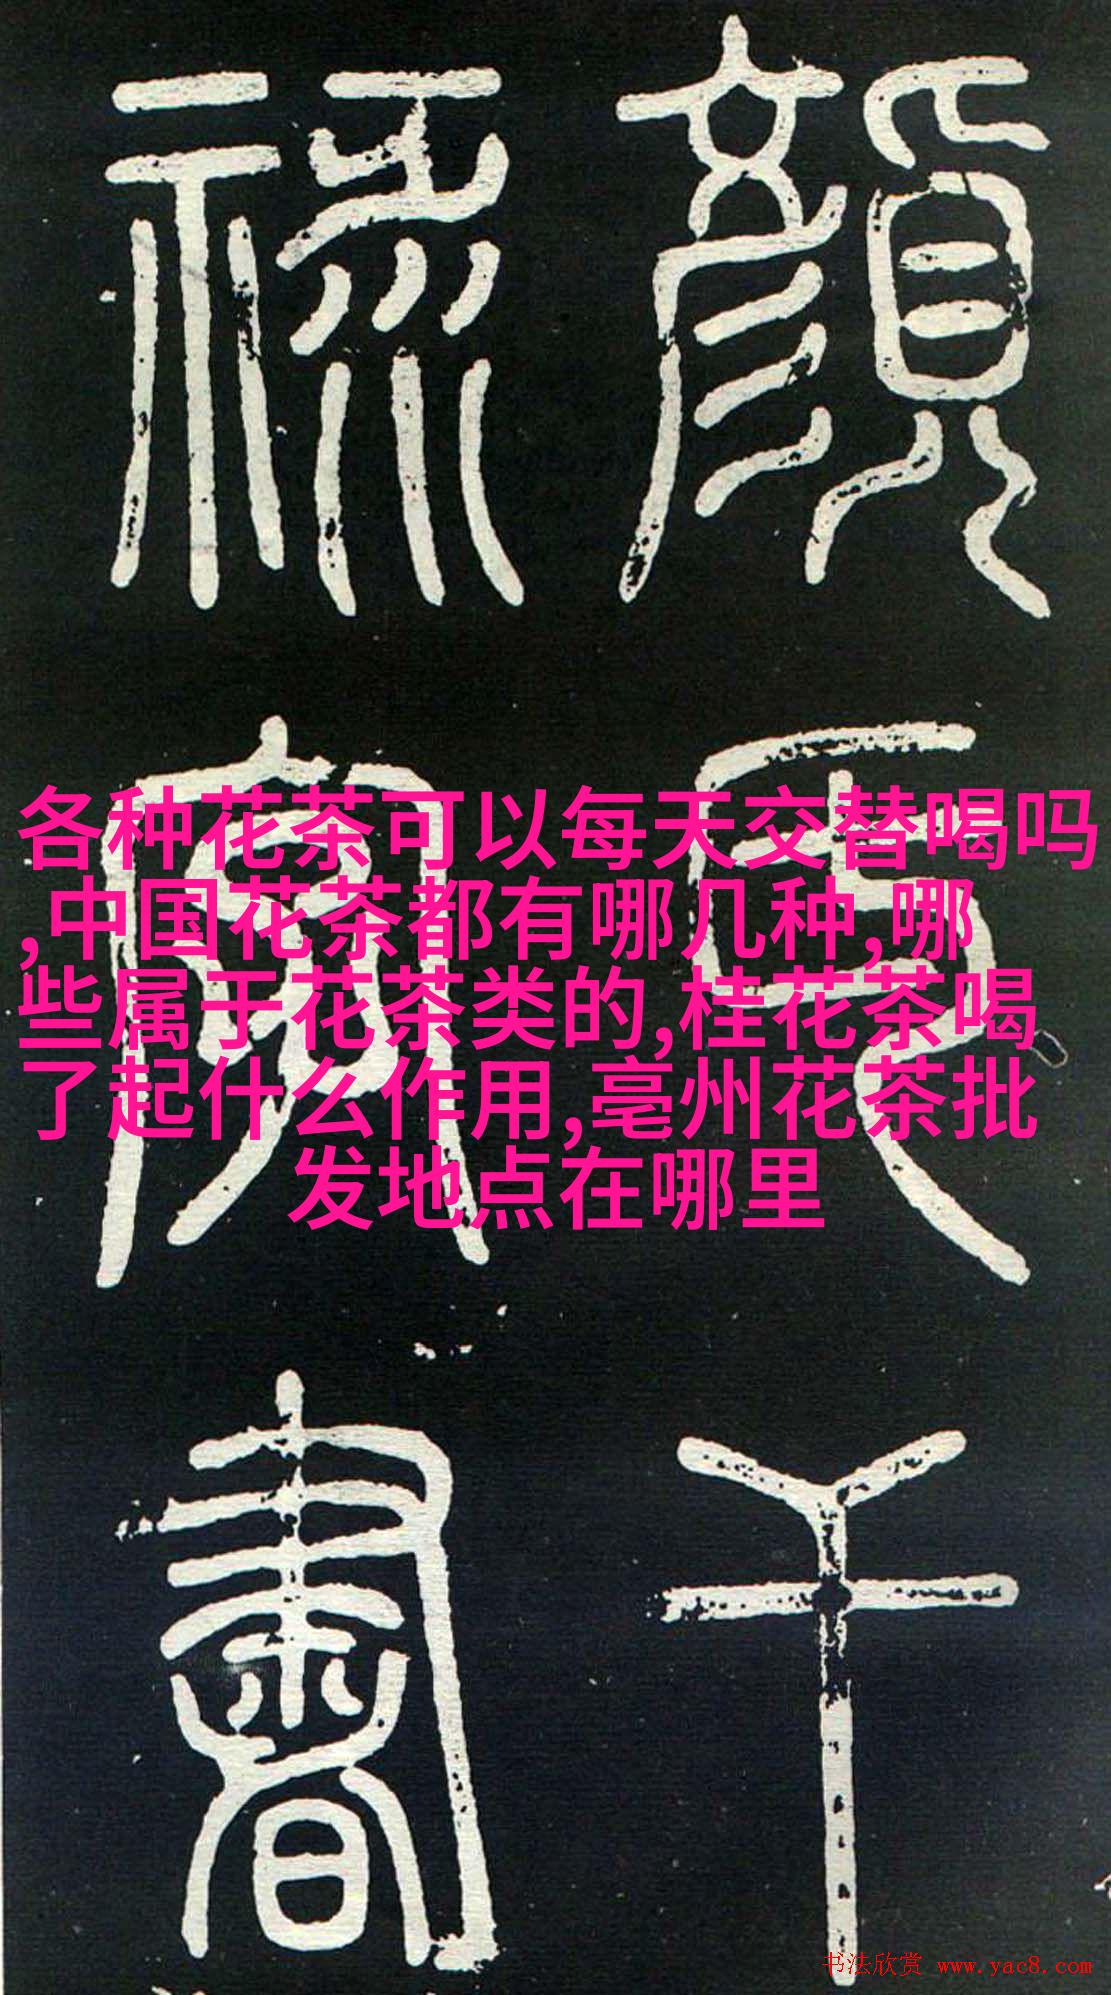 各种花茶可以每天交替喝吗
,中国花茶都有哪几种,哪
些属于花茶类的,桂花茶喝
了起什么作用,亳州花茶批
发地点在哪里
顏氏干
祿寫書
书法欣赏 www.yac8.com